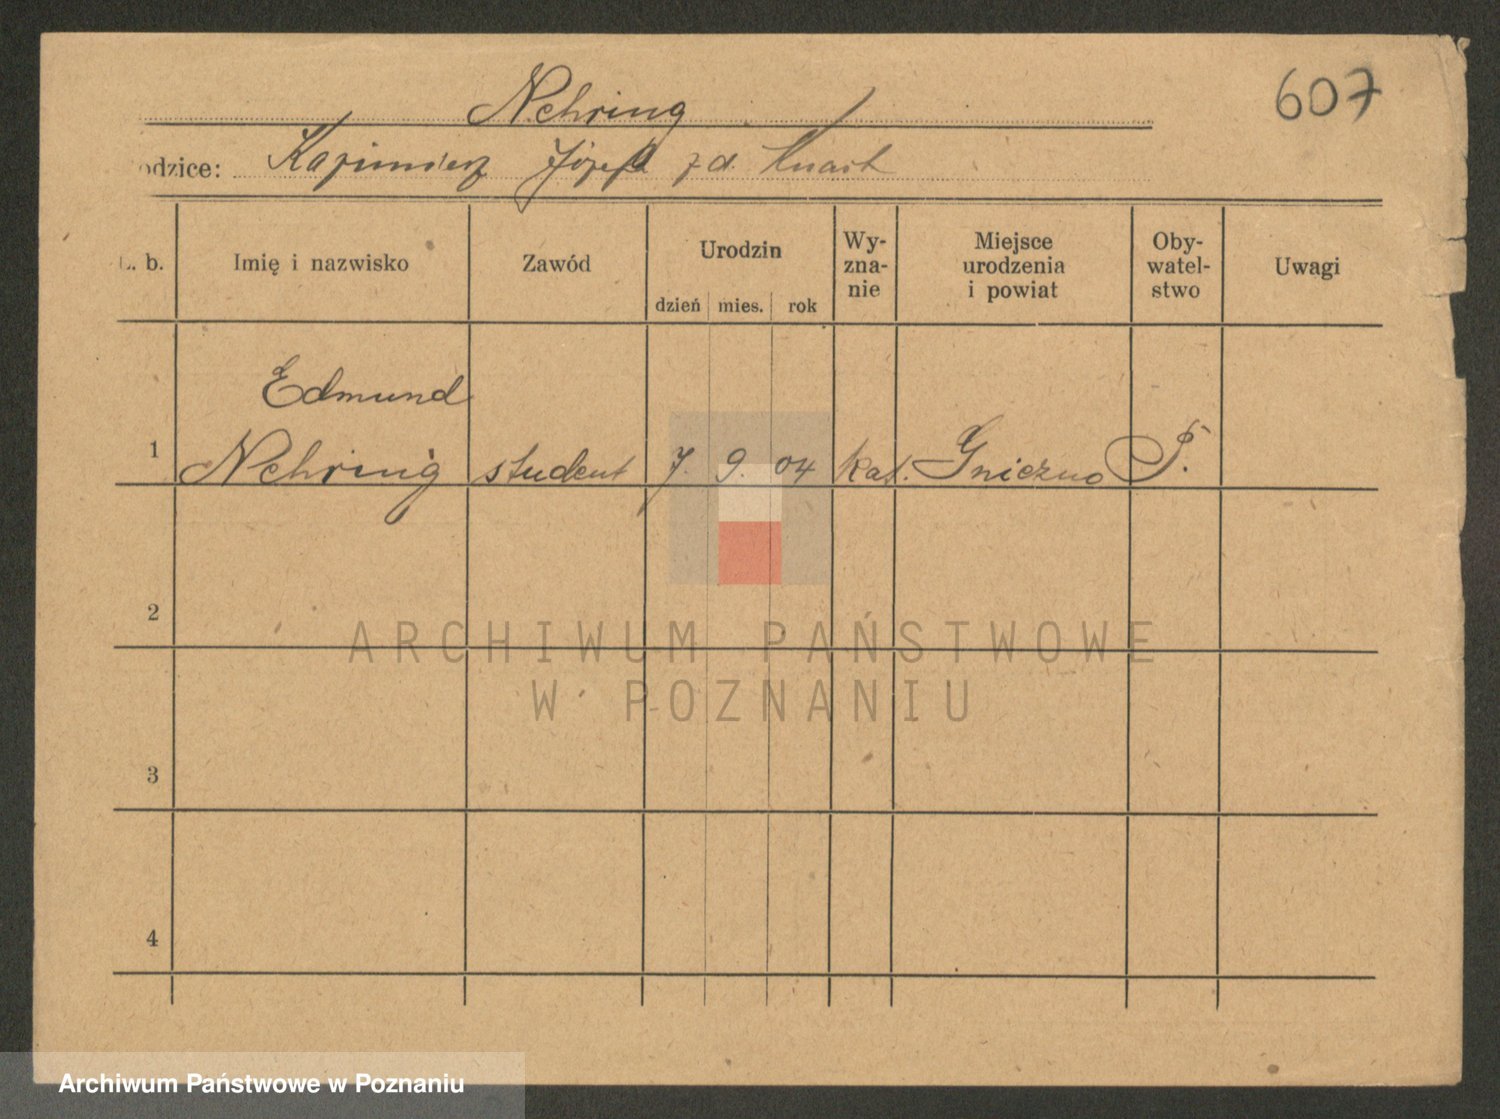 Nehring
607
odzice: Kazimierz Józefa z d. Knast
L. b.
Imię i nazwisko
Zawód
Urodzin
dzień mies. rok
Wy-
zna-
nie
Miejsce
urodzenia
i powiat
Oby-
watel-
stwo
Uwagi
Edmund
1 Nehring student 7. 9. 04 kat. Gniezno P.
2
3
4
ARCHIWUM PAŃSTWOWE
W POZNANIU
Archiwum Państwowe w Poznaniu